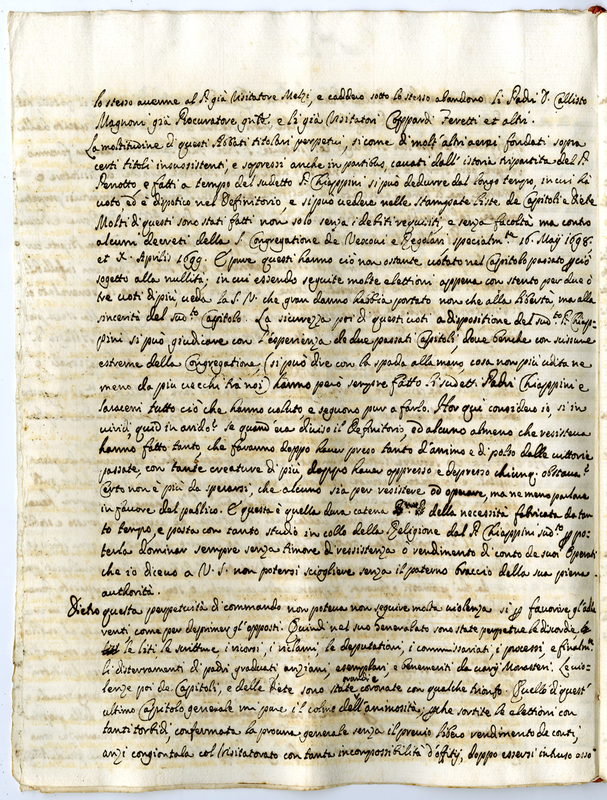 lo stesso avenne al P. già Visitatore Melzi, e caddero sotto lo stesso abandono li Padri D. Callisto
Magnoni già Procuratore gnle, e li già Visitatori Cappardi Feretti et altri.
La moltitudine di questi Abbati titolari perpetui, si come di molt'altri anzi fondati sopra
certi titoli insussistenti, e soppressi anche in partibus, cauati dall'istoria tripartita del P.
Penotto, e fatti a tempo del sudetto P. Chiappini si può dedurre dal longo tempo, in cui hà
uoto, ed è dispotico nel Definitorio, e si può uedere nelle stampate liste de Capitoli e Diete
Molti di questi sono stati fatti non solo senza i debiti requisiti, e senza facoltà ma contro
alcuni decreti della S. Congregatione de Vescoui e Regolari specialmte 16. Maij 1698.
et X. Aprilis 1699. E pure questi hanno ciò non ostante uotato nel Capitolo passato ꝑciò
sogetto alla nullità; in cui essendo seguite molte elettioni appena con stento per due ò
tre uoti di più, ueda la S. V. che gran danno habbia portato non che alla libertà, ma alla
sincerità del sudto Capitolo. La sicurezza poi di questi uoti a dispositione del sudto P. Chiap-
pini si può giudicare con l'esperienza de due passati Capitoli, doue benche con scissure
estreme della Congregatione, (si può dire con la spada alla mano, cosa non più udita ne
meno da più uecchi trà noi) hanno però sempre fatto li sudetti Padri Chiappini e
Saraceni tutto ciò che hanno uoluto e seguono pur a farlo. Hor qui considero io, si in
uiridi quid in arido? se quando era diuiso il Definitorio, ed alcuno almeno che resisteua
hanno fatto tanto, che faranno doppo hauer preso tanto d'animo e di polso dalle uittorie
passate, con tante creature di più, doppo hauer oppresso e depresso chiunq. obstaua?
Certo non è più da sperarsi, che alcuno sia per resistere, od operare, ma ne meno parlare
in fauore del publico. E questa è quella dura catena della necessità fabricata da tan
to tempo, e posta con tanto studio in collo della Religione dal P. Chiappini sudto ꝑ po-
terla dominar sempre senza timore di resistenza o rendimento di conto de suoi operati
che io diceuo a V. S. non potersi sciogliere senza il paterno braccio della sua piena
authorità.
Dietro questa perpetuità di commando non poteua non seguire molta uiolenza si ꝑ fauorire gl'ade
renti come per deprimer gl'opposti. Quindi nel suo Generalato sono state perpetue le discordie
le liti le scritture, i ricorsi, i reclami, le deputationi, i commissariati, i processi, e finalmte
li disterramenti di padri graduati anziani, esemplari, e benemeriti da uarij Monasteri. Le uio-
lenze poi de Capitoli, e delle Diete sono state coronate con qualche trionfo. Quello di quest'
ultimo Capitolo generale mi pare il colmo dell'animosità, ꝑche sortite le elettioni con
tanti torbidi confermata la procura generale senza il preuio libero rendimento de conti,
anzi congiontala col Visitatorato con tanta incompossibilità d'offitij, doppo essersi intruso asso